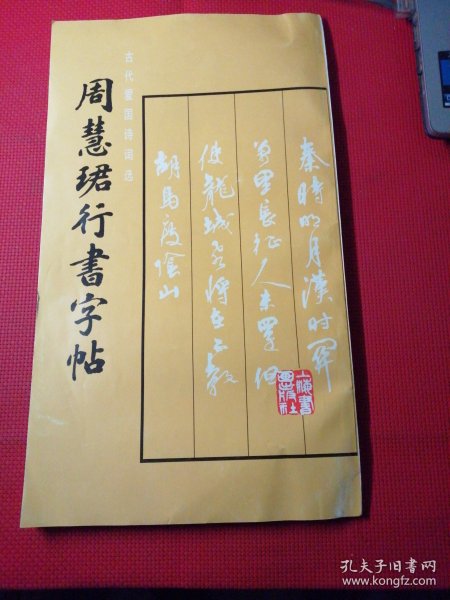 周慧珺行書字帖
古代爱国诗词选
秦時明月漢时関
萬里长征人未還但
使龍城飛将在不教
胡馬度陰山
孔夫子旧书网
www.kongfz.com